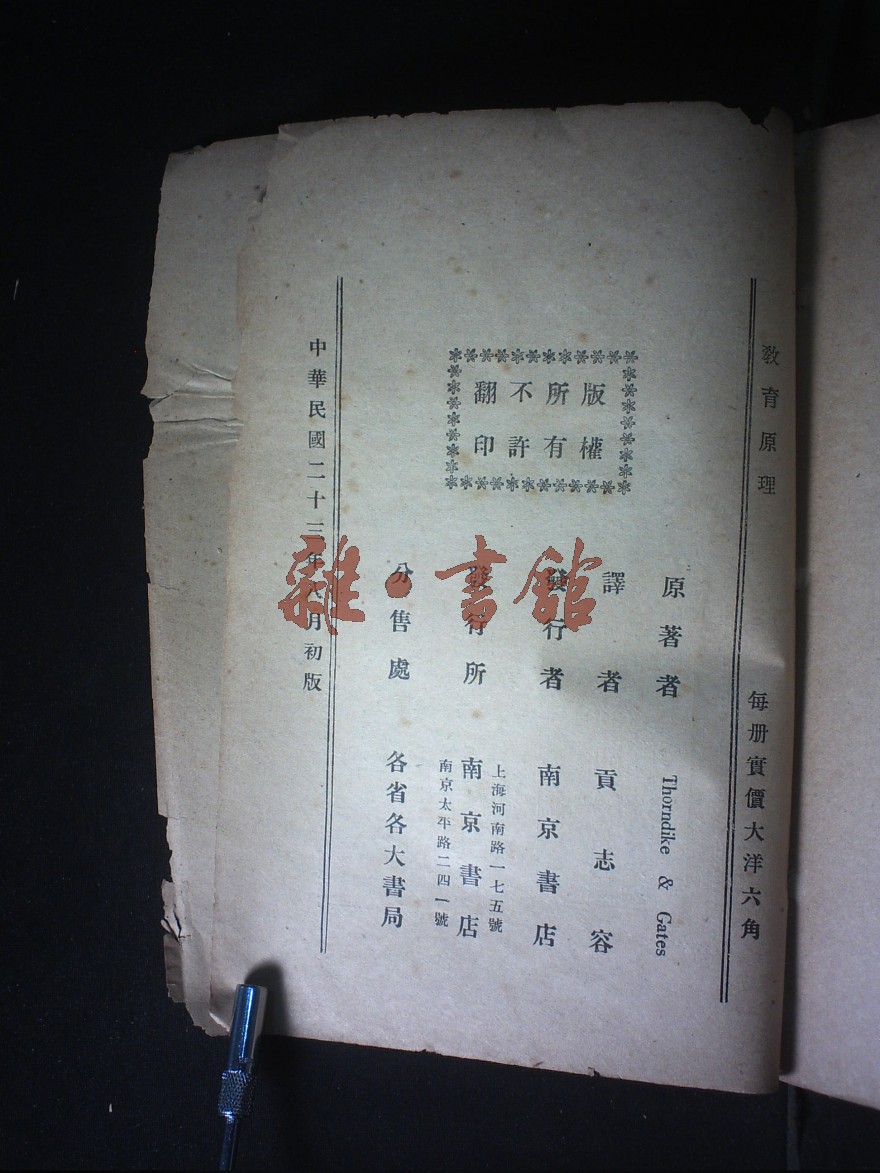 教育原理
每册實價大洋六角
版權
所有
不許
翻印
原著者 Thorndike & Gates
譯者 貢志容
發行者 南京書店
發行所 南京書店
上海河南路一七五號
南京太平路二四一號
分售處 各省各大書局
中華民國二十三年八月初版
雜·書館